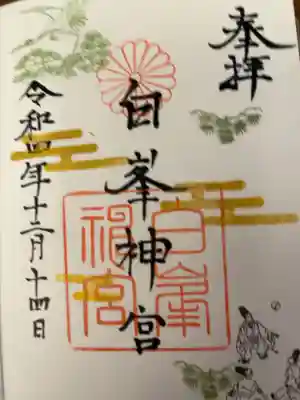 奉拝
白峯神宮
白峯神宮
令和四年十二月十四日